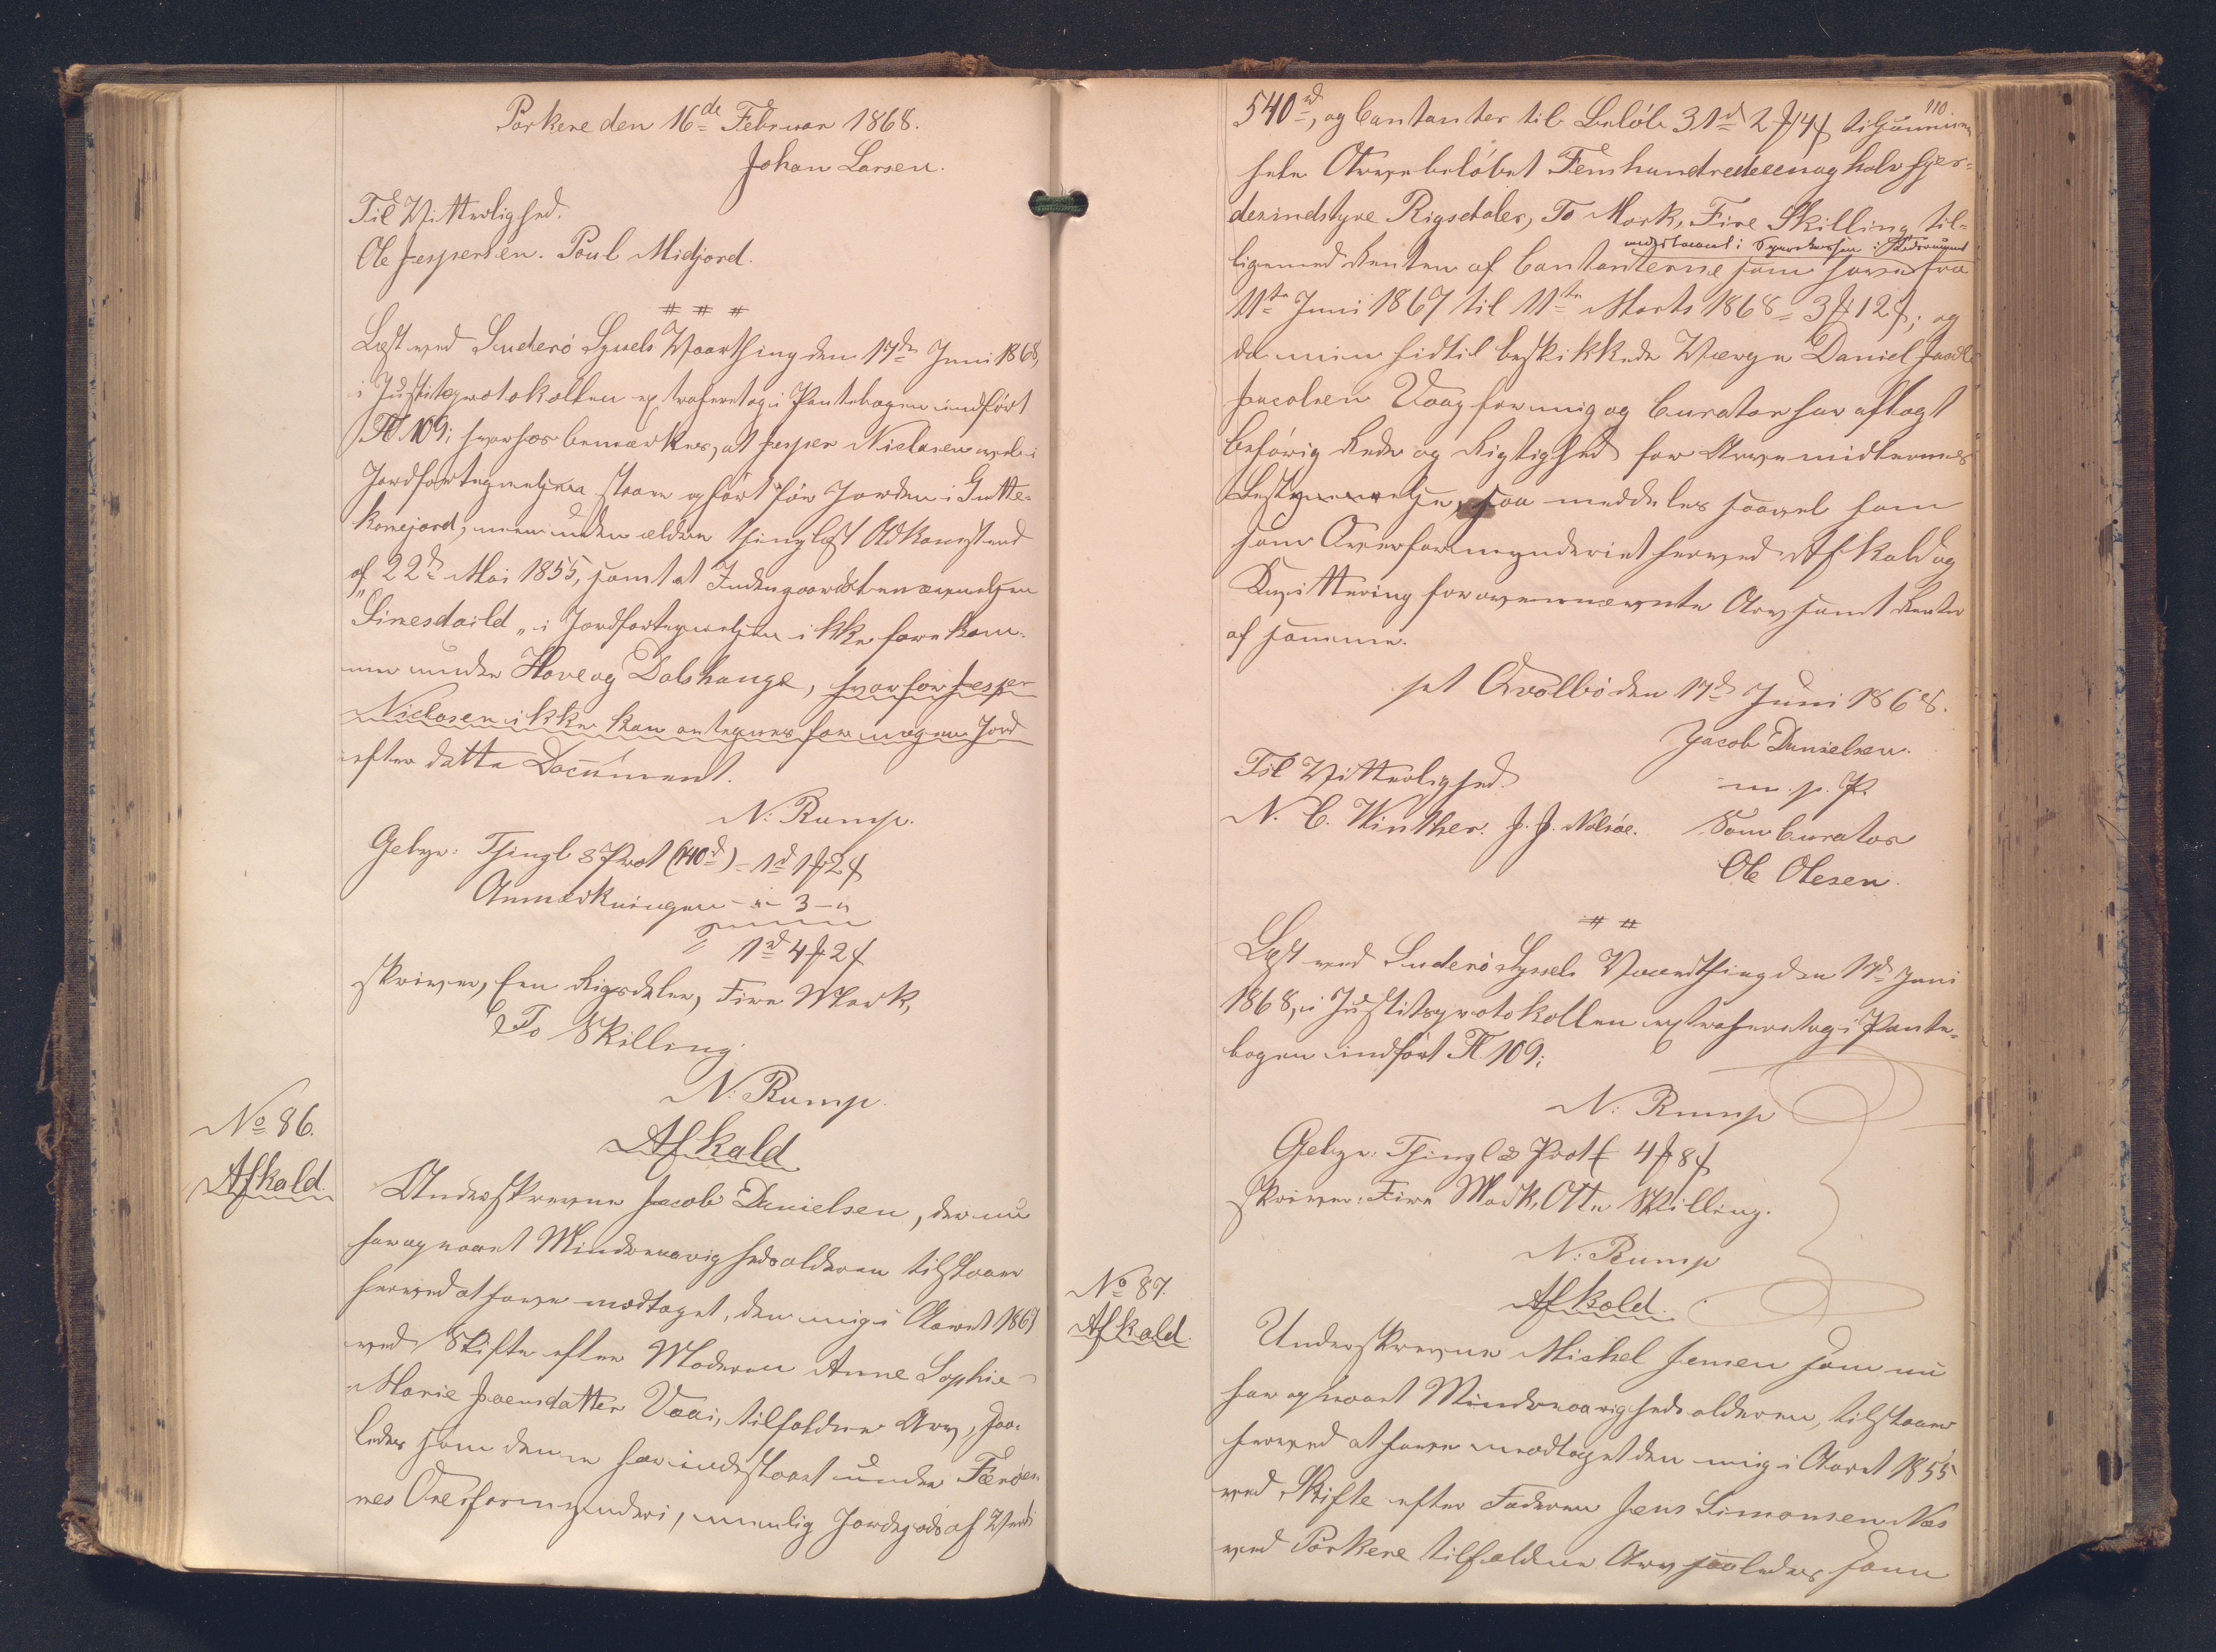 Porkere den 16de Februar 1868.
Johan Larsen.
Til Vitterlighed.
Ole Jespersen. Poul Midjord.
# # #
Læst ved Suderö Syssels Vaarthing den 17de Juni 1868,
i Justitsprotokollen extraheret og i Pantebogen indfört
Fl 109; hvorhos bemærkes, at Jesper Niclasen vel i
Jordfortegnelsen staaer opfört for Jorden i
Konejord, men uden ældre thinglæst Adkomst end
af 22de Mai 1855, samt at Indengaardsbenævnelsen
"Sinesdaild" i Jordfortegnelsen ikke forekom-
mer under Hove og Dalshauge, hvorfor Jesper
Niclasen ikke kan antegnes for nogen Jord
efter dette Document.
N. Rump.
Gebyr: Thingl & Prot (140rd) - 1rd 1 ₻ 2 β
Anmærkningen - " - 3 - "
1rd 4 ₻ 2 β
skriver, Een Rigsdaler, Fire Mark,
& To Skilling.
N. Rump.
No 86.
Afkald.
Afkald
Underskrevne Jacob Danielsen, der nu
har opnaaet Mindreaarighedsalderen tilstaaer
herved at have modtaget, den mig i Aaret 1867
ved Skifte efter Moderen Anne Sophie
Marie Joensdatter Vaai, tilfaldne Arv, saa-
ledes som denne har indestaaet under Færöer-
nes Overformynderi, nemlig Jordegods af Værdi
110.
540rd, og Contanter til Beløb 31rd 2 ₻ 14 β tilsammen
hele Arvebeløbet Femhundrede een og halvfjer-
desindstyve Rigsdaler, To Mark, Fire Skilling, til-
indestaaet i Sparekassen i
ligemed Renten af Contanterne som haves fra
11te Juni 1867 til 11te Marts 1868 = 3 ₻ 12 β; og
da min hidtil beskikkede Værge Daniel
Jacobsen Vaag for mig og Curator har aflagt
behörig Rede og Rigtighed for Arvemidlernes
Bestyrelse, saa meddeles saavel ham
som Overformynderiet herved Afkald og
Qvittering for ovennævnte Arv samt Renter
af samme.
pt Qvalbö den 17de Juni 1868.
Jacob Danielsen.
m. p. P.
Til Vitterlighed.
N. C. Winther. J. J. Nolsöe.
Som Curator
Ole Olesen.
# #
Læst ved Suderö Syssels Vaarthing den 17de Juni
1868, i Justitsprotokollen extraheret og i Pante-
bogen indfört Fl. 109;
N. Rump
Gebyr: Thingl & Prot 4 ₻ 8 β
skriver: Fire Mark, Otte Skilling.
N. Rump
No 87.
Afkald.
Afkald.
Underskrevne Michel Jensen som nu
har opnaaet Mindreaarighedsalderen, tilstaaer
herved at have modtaget den mig i Aaret 1855
ved Skifte efter Faderen Jens Simonsen Næs
ved Porkere tilfaldne Arv saaledes som